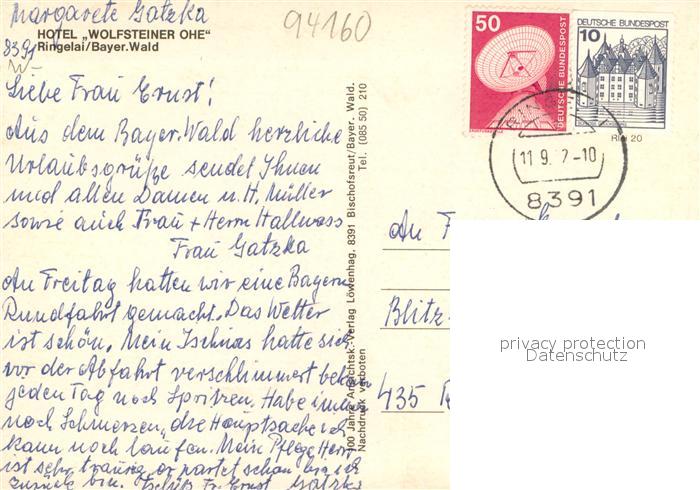 Margarete Gatzka
94160
HOTEL „WOLFSTEINER OHE"
8391
Ringelai/Bayer.Wald
Liebe Frau Ernst!
Aus dem Bayer. Wald herzliche
Urlaubsgrüße sendet Ihnen
und allen Damen u. H. Müller
sowie auch Frau + Herrn Hallwass
Frau Gatzka
An Freitag hatten wir eine Bayern
Rundfahrt gemacht. Das Wetter
ist schön. Mein Ischias hatte sich
vor der Abfahrt verschlimmert bekam
jeden Tag noch Spritzen. Habe immer
noch Schmerzen, die Hauptsache ich
kann noch laufen. Mein Pflege Herr
ist sehr traurig er wartet schon bis ich
zurück bin. Tschüß Fr. Ernst Gatzka
100 Jahre Ansichtsk.-Verlag Löwenhag, 8391 Bischofsreut/Bayer. Wald.
Nachdruck verboten
Tel. (085 50) 210
50
DEUTSCHE BUNDESPOST
DEUTSCHE BUNDESPOST
10
20
11.9. 7-10
8391
An F
Blitz-
435
privacy protection
Datenschutz